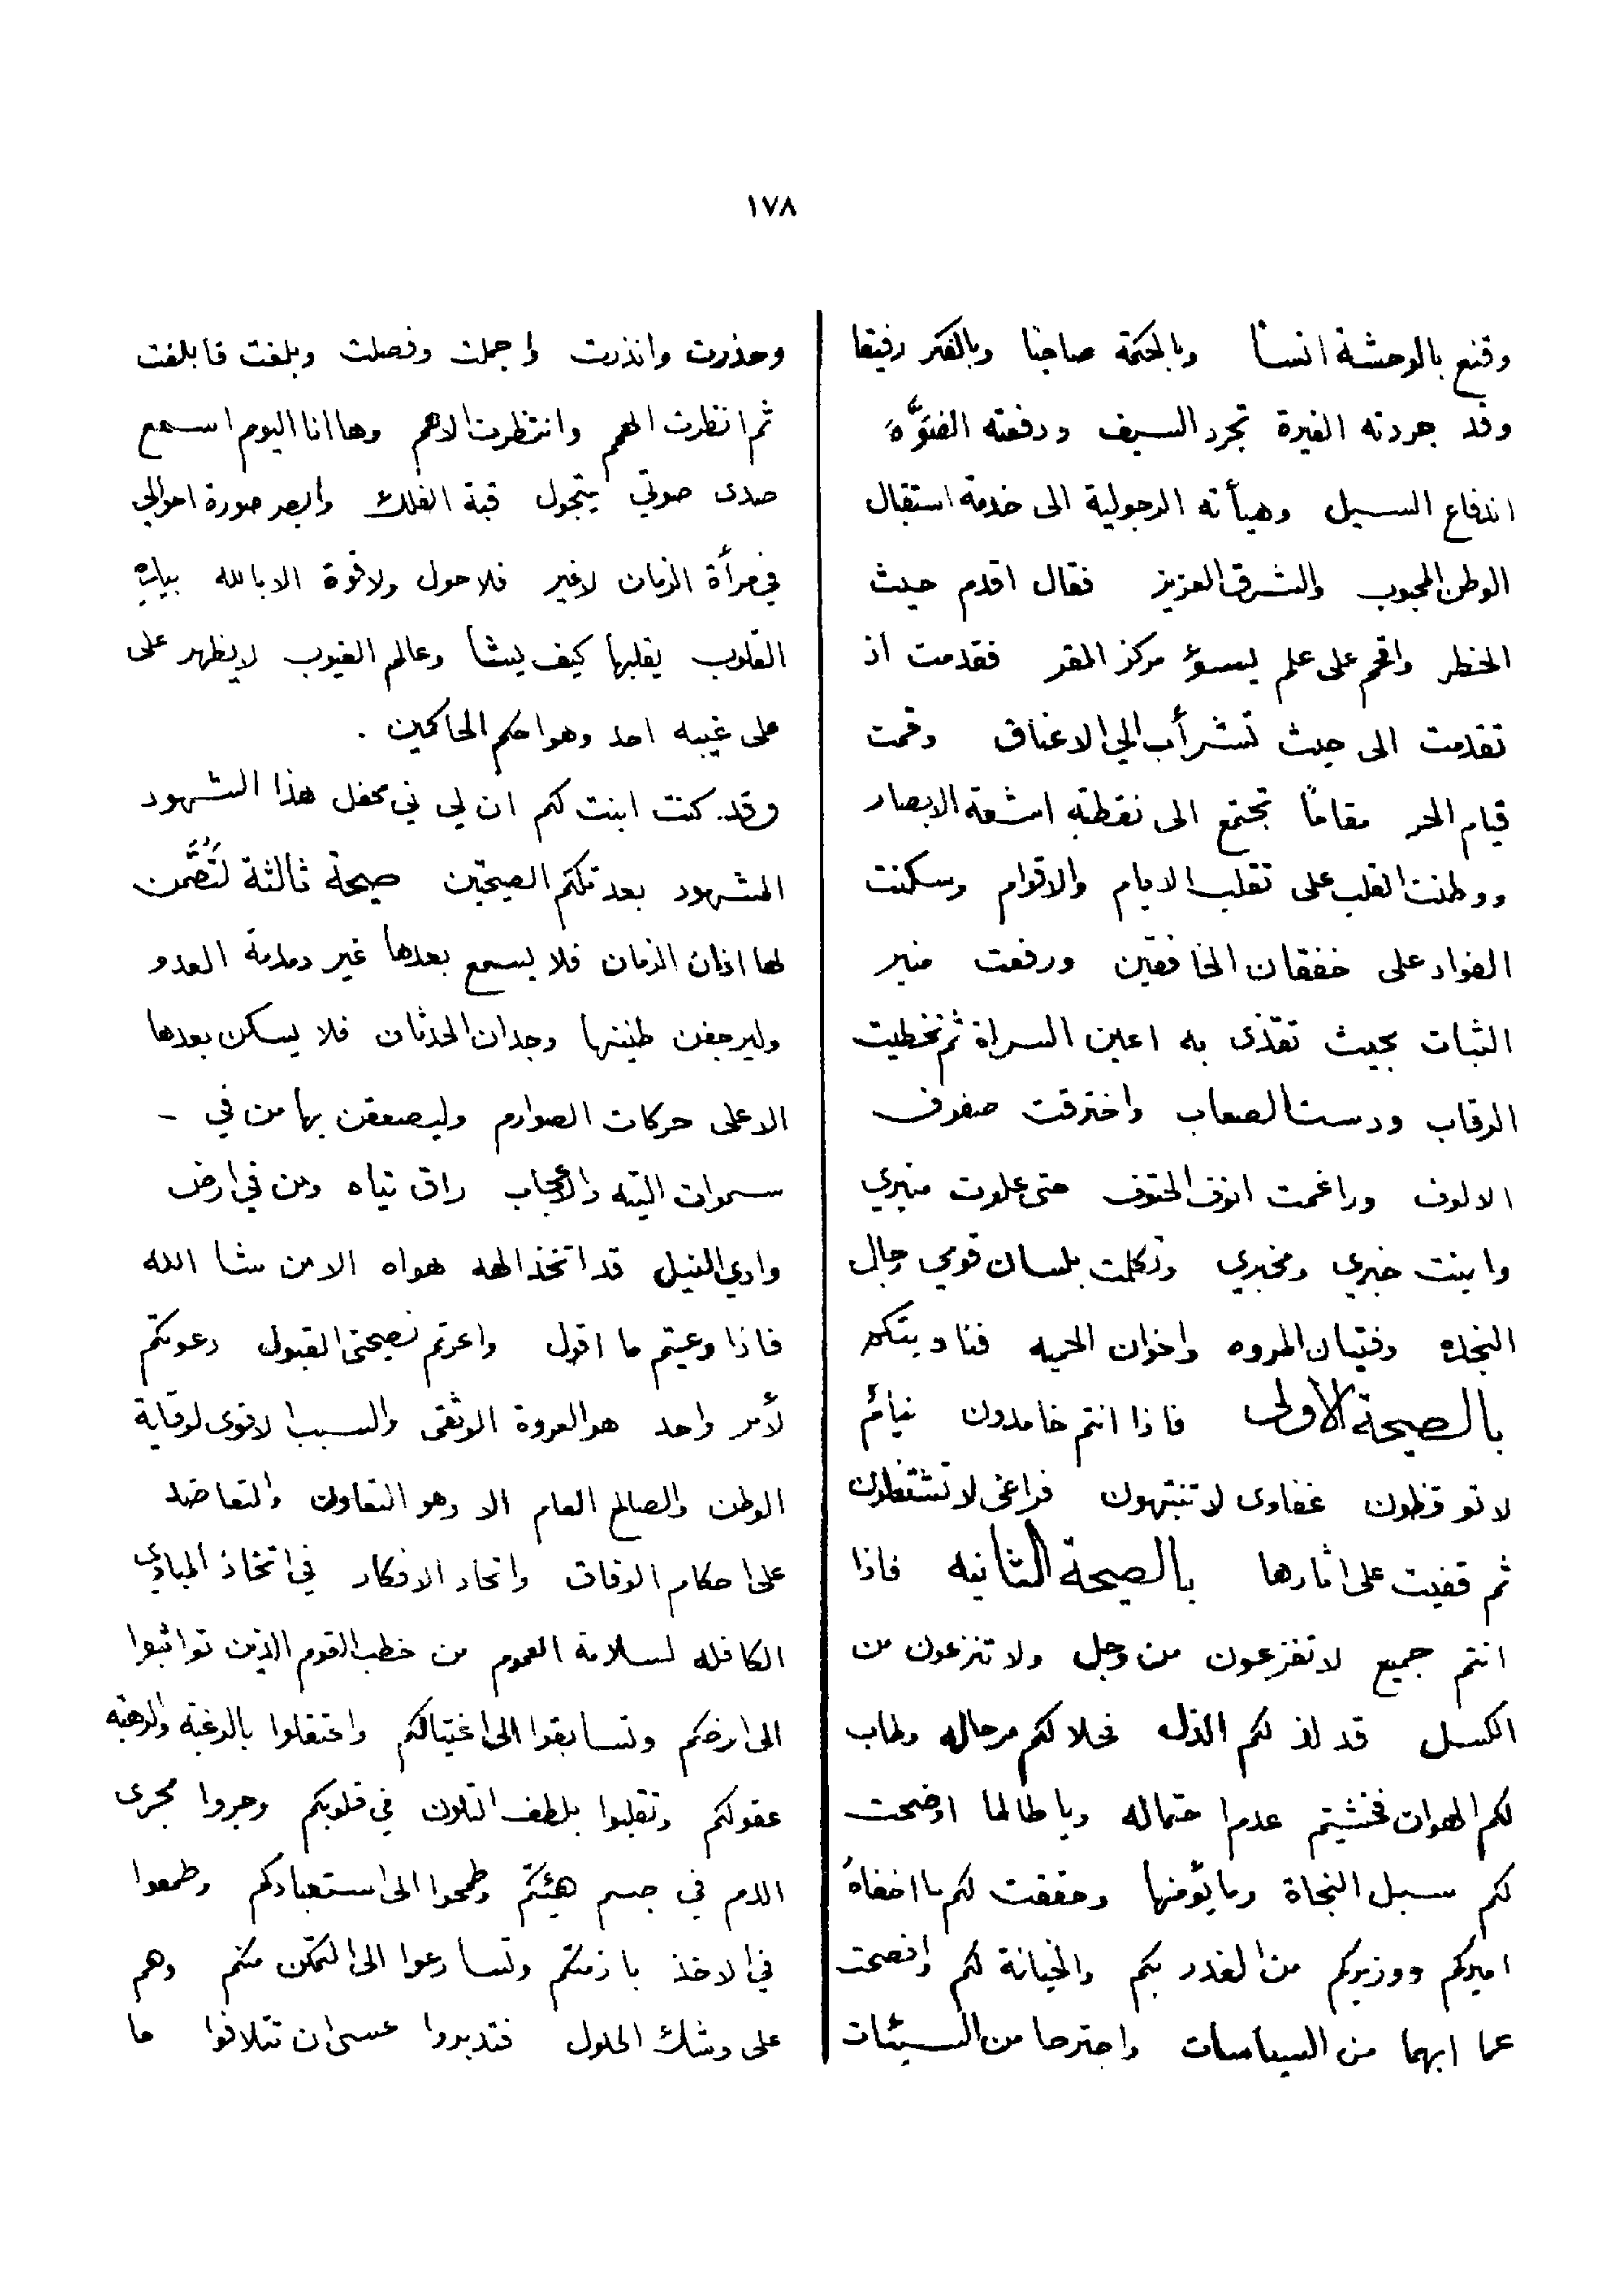 ١٧٨
وقنع بالوحشة انسا وبالحكمة صاحبا وبالفكر رفيقا
وقد جردته الغيرة تجرد السيف ودفعته الفتوَّة
اندفاع السيل وهيأته الرجولية الى خدمة استقبال
الوطن المحبوب والشرق العزيز فقال اقدم حيث
الخطر واقحم على علم ليسؤ مركز المقر فقدمت اذ
تقدمت الى حيث تشرأب الي الاعناق وقمت
قيام الحر مقاما تجتمع الى نقطته اشعة الابصار
ووطنت القلب على تقلب الايام والاقوام وسكنت
الفواد على خفقان الخافقين ورفعت منبر
الثبات بحيث تقذى به اعين السراة ثم تخطيت
الرقاب ودست الصعاب واخترقت صفوف
الالوف وراغمت انوف الحتوف حتى علوت منبري
وابنت خبري ومخبري وتكلمت بلسان قومي رجال
النجده وفتيان المروه واخوان الحميه فناديتكم
بالصيحة الاولى فاذا انتم خامدون نيأم
لا توقظون غفاوى لا تنتبهون فراغى لا تشتغلون
ثم قفيت على اثارها بالصيحة الثانيه فاذا
انتم جميع لا تفزعون من وجل ولا تنزعون من
الكسل قد لذ لكم الذل فحلا لكم مرحاله وطاب
لكم الهوان فخشيتم عدم احتماله ويا طالما اوضحت
لكم سبل النجاة وما يؤمنها وحققت لكم ما اخفاهُ
اميركم ووزيركم من الغدر بكم والخيانة لكم وافصحت
عما ابهما من السياسات واجترحا من السيئات
وحذرت وانذرت واجملت وفصلت وبلغت فابلغت
ثم انظرت الهمم وانتظرت الاهم وها انا اليوم اسمع
صدى صوتي يتجول قبة الفلك وابصر صورة احوالي
في مرأة الزمان لا غير فلا حول ولا قوة الا بالله بيده
القلوب يقلبها كيف يشا وعالم الغيوب لا يظهر على
على غيبه احد وهو احكم الحاكمين .
وقد كنت ابنت لكم ان لي في محفل هذا الشهود
المشهود بعد تلكم الصيحتين صيحة ثالثة لَتُصَّمن
لها اذان الزمان فلا يسمع بعدها غير دمدمة العدو
وليرجفن طنينها وجدان الحدثان فلا يسكن بعدها
الا على حركات الصوارم وليصعقن بها من في -
سموات التيه والاعجاب راق تياه ومن في ارض
وادي النيل قد اتخذ الهه هواه الا من شا الله
فاذا وعيتم ما اقول واعرتم نصيحتى القبول دعوتكم
لأمر واحد هو العروة الوثقى والسبب الاقوى لوقاية
الوطن والصالح العام الا وهو التعاون والتعاضد
على احكام الوفاق واتحاد الافكار في اتخاذ المبادي
الكافله لسلامة العموم من خطب القوم الذين تواثبوا
الى ارضكم وتسابقوا الى اغتيالكم واعتقلوا بالرغبة والرهبه
عقولكم وتقلبوا بلطف التلون في قلوبكم وجروا مجرى
الدم في جسم هيئتكم وطمحوا الى استعبادكم وطمعوا
في الاخذ بازمتكم وتسارعوا الى التمكن منكم وهم
على وشك الحلول فتدبروا عسى ان تتلافوا ما